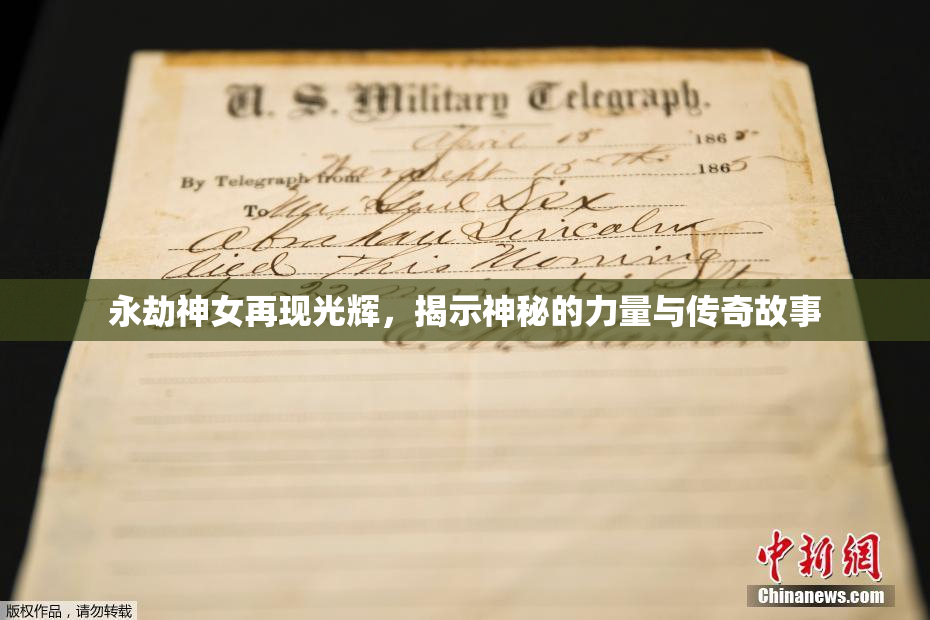 U. S. Military Telegraph.
April 15 1865
By Telegraph from War Dept 15th 1865
To Maj Genl Dix
Abraham Lincoln
died This Morning
22 minutes after
永劫神女再现光辉，揭示神秘的力量与传奇故事
E. M. Stanton
中新网
Chinanews.com
版权作品，请勿转载